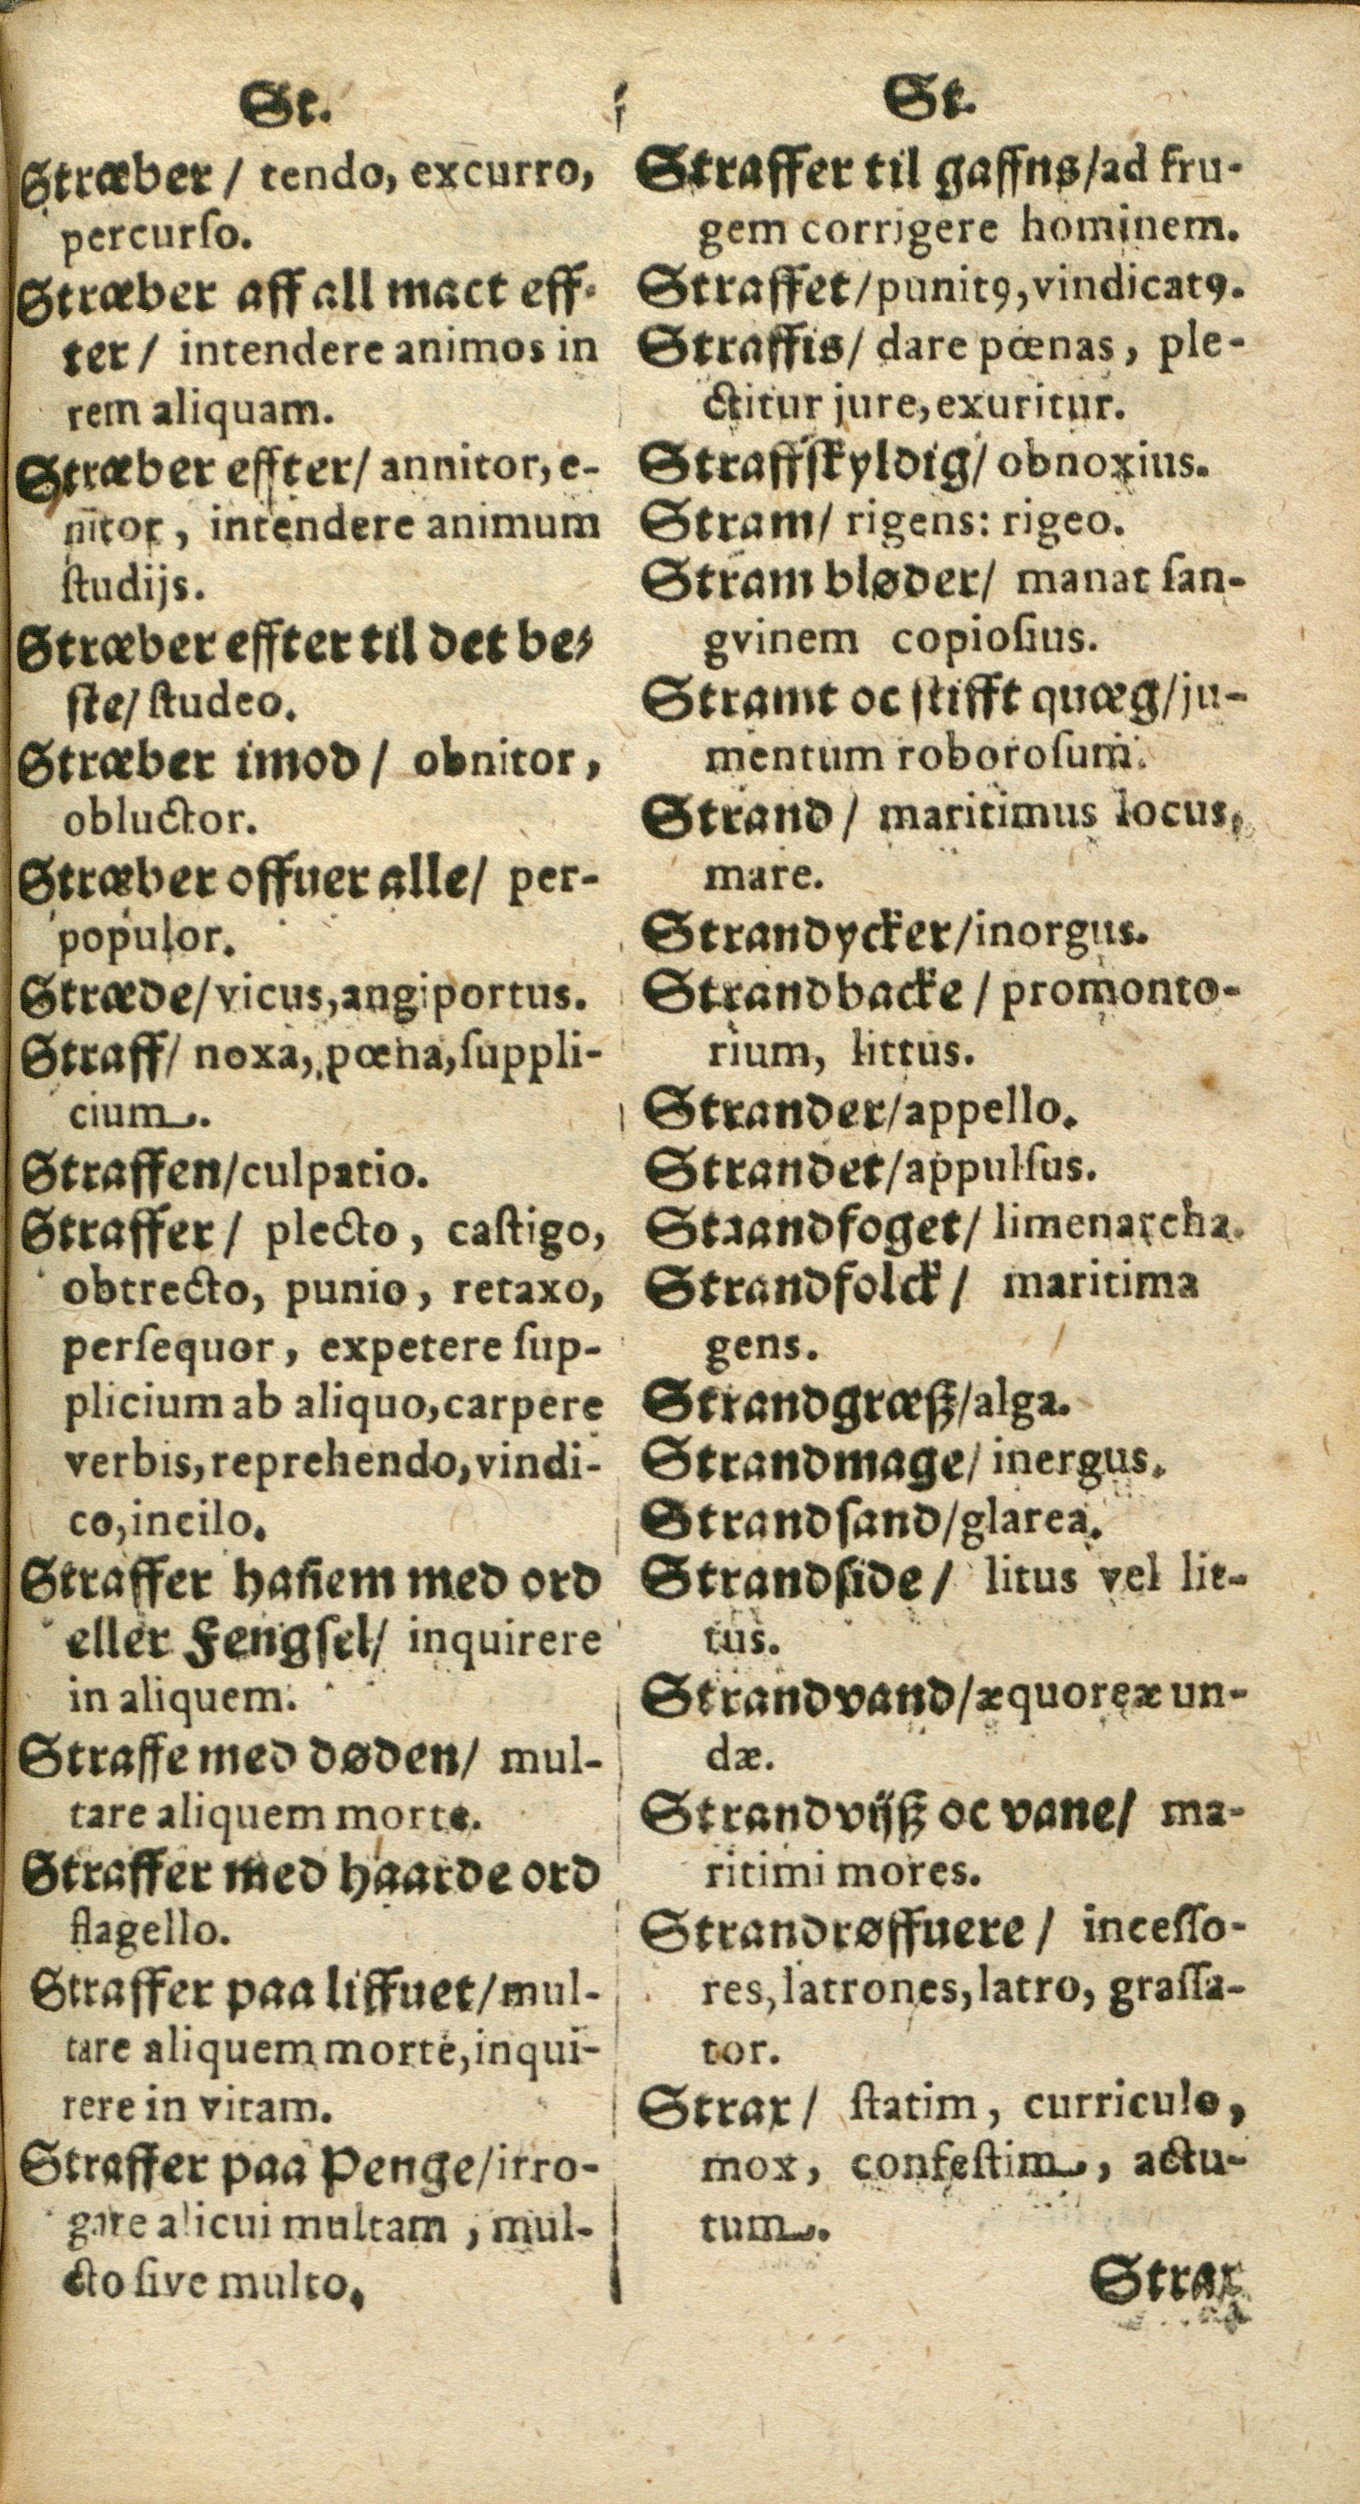 St.
Stræber / tendo, excurro,
percurſo.
Stræber aff all mact eff-
ter / intendere animos in
rem aliquam.
Stræber effter / annitor, e-
nitor, intendere animum
ſtudijs.
Stræber effter til det be-
ſte / ſtudeo.
Stræber imod / obnitor,
obluctor.
Stræber offuer alle / per-
populor.
Stræde / vicus, angiportus.
Straff / noxa, pœna, ſuppli-
cium.
Straffen / culpatio.
Straffer / plecto, caſtigo,
obtrecto, punio, retaxo,
perſequor, expetere ſup-
plicium ab aliquo, carpere
verbis, reprehendo, vindi-
co, incilo.
Straffer hañem med ord
eller Fengſel / inquirere
in aliquem.
Straffe med døden / mul-
tare aliquem morte.
Straffer med haarde ord
flagello.
Straffer paa liffuet / mul-
tare aliquem morte, inqui-
rere in vitam.
Straffer paa Penge / irro-
gare alicui multam, mul-
cto ſive multo.
St.
Straffer til gaffns / ad fru-
gem corrigere hominem.
Straffet / punitꝰ, vindicatꝰ.
Straffis / dare pœnas, ple-
ctitur jure, exuritur.
Straffſkyldig / obnoxius.
Stram / rigens: rigeo.
Stram bløder / manat ſan-
gvinem copioſius.
Stramt oc ſtifft quæg / ju-
mentum roboroſum.
Strand / maritimus locus,
mare.
Strandycker / inorgus.
Strandbacke / promonto-
rium, littus.
Strander / appello.
Strandet / appulſus.
Straandfoget / limenarcha.
Strandfolck / maritima
gens.
Strandgræſz / alga.
Strandmage / inergus.
Strandſand / glarea.
Strandſide / litus vel lit-
tus.
Strandvand / æquoreæ un-
dæ.
Strandvijſz oc vane / ma-
ritimi mores.
Strandrøffuere / inceſſo-
res, latrones, latro, graſſa-
tor.
Strax / ſtatim, curriculo,
mox, confeſtim, actu-
tum.
Strax